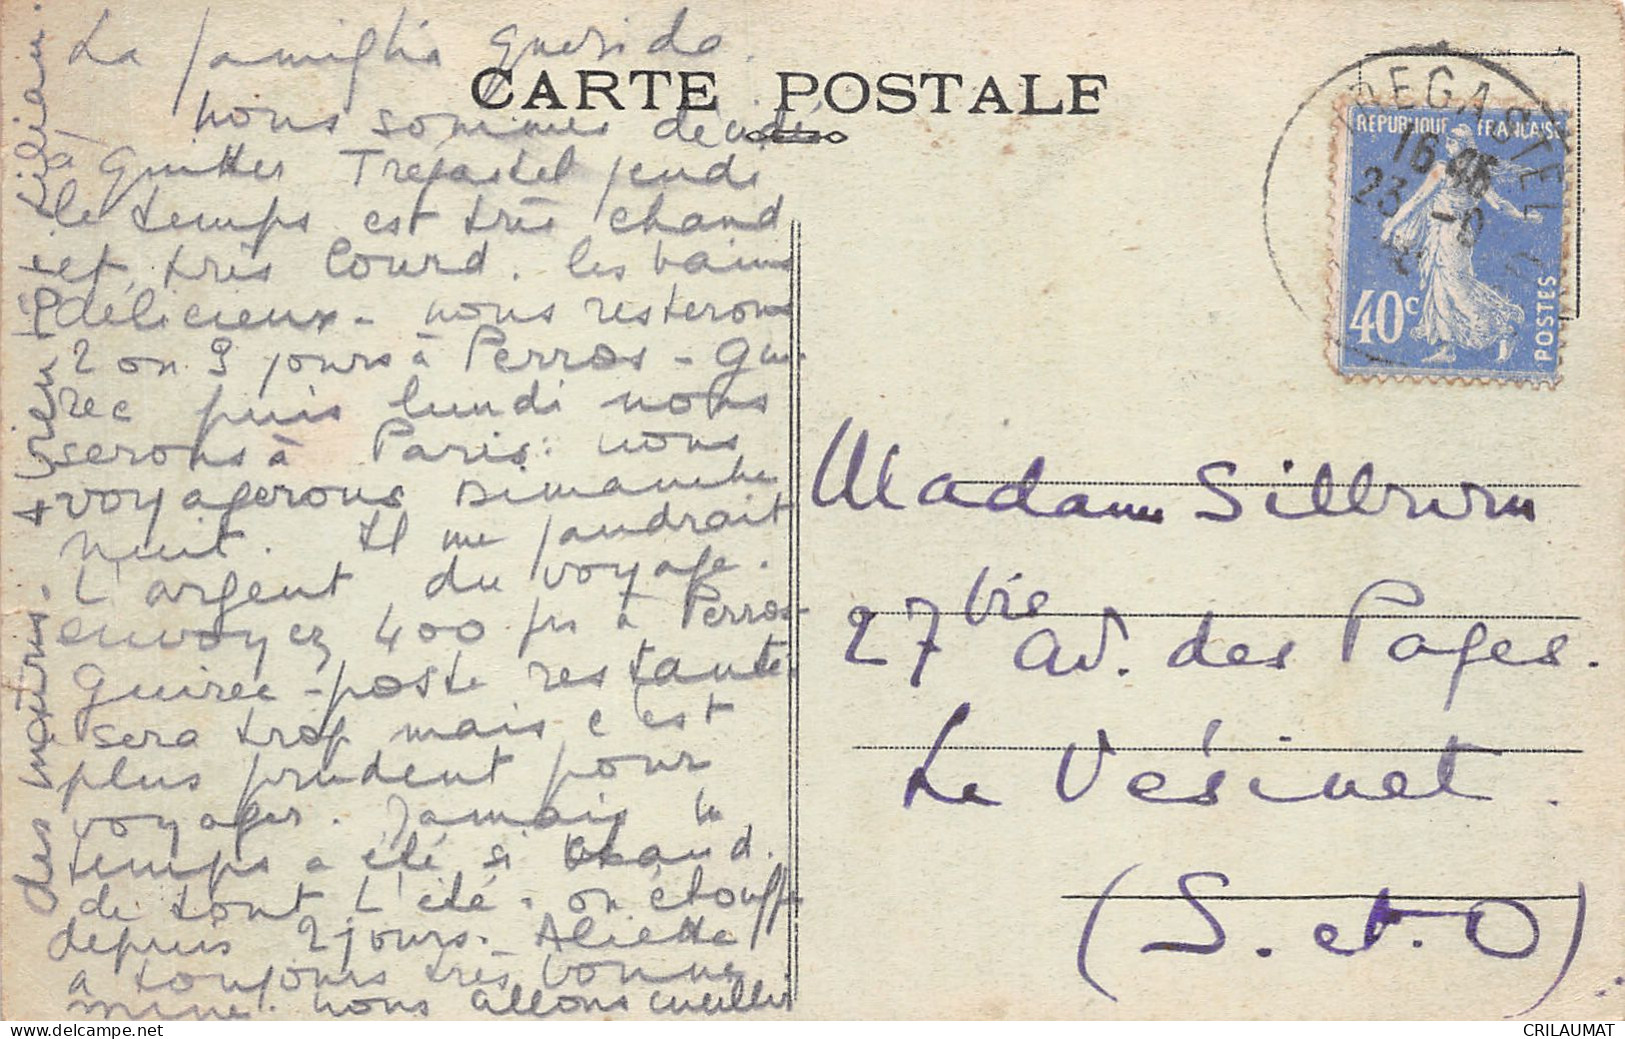 La famiglia querida.
CARTE POSTALE
nous sommes décidés
à quitter Tregastel jeudi
le temps est très chaud
et très lourd. les bains
délicieux - nous resterons
2 ou 3 jours à Perros-Gui-
rec puis lundi nous
serons à Paris: nous
voyagerons Dimanche
nuit. Il me faudrait
l'argent du voyage.
envoyez 400 frs à Perros-
Guirec - poste restante.
sera trop mais c'est
plus prudent pour
voyager. Jamais le
temps a été si chaud.
de tout l'été - on étouffe
depuis 2 jours. Aliette
a toujours très bonne
mine. nous allons cueillir
des mûres.
Lilian.
TREGASTEL
16 45
23 -
REPUBLIQUE FRANÇAISE
40c
POSTES
Madame Silbrurn
27 bis av. des Pages.
Le Vésinet.
(S. et. O)
CRILAUMAT